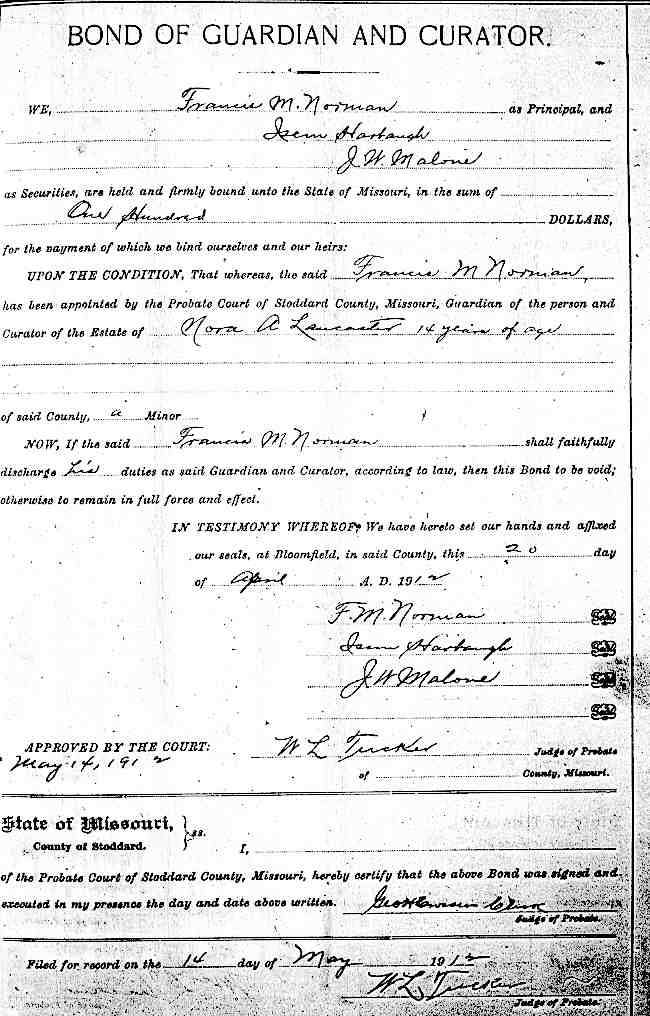 BOND OF GUARDIAN AND CURATOR.
WE, Francis M. Norman as Principal, and
Isem Harbaugh
J. W. Malone
as Securities, are held and firmly bound unto the State of Missouri, in the sum of
One Hundred DOLLARS,
for the payment of which we bind ourselves and our heirs:
UPON THE CONDITION, That whereas, the said Francis M Norman,
has been appointed by the Probate Court of Stoddard County, Missouri, Guardian of the person and
Curator of the Estate of Nora A Lancaster 14 years of age
of said County, a Minor
NOW, If the said Francis M Norman shall faithfully
discharge his duties as said Guardian and Curator, according to law, then this Bond to be void;
otherwise to remain in full force and effect.
IN TESTIMONY WHEREOF, We have hereto set our hands and affixed
our seals, at Bloomfield, in said County, this 20 day
of April A. D. 1912
F. M. Norman Seal
Isem Harbaugh Seal
J W Malone Seal
Seal
APPROVED BY THE COURT: W L Tucker Judge of Probate
May 14, 1912 of County, Missouri.
State of Missouri, } ss.
County of Stoddard. I,
of the Probate Court of Stoddard County, Missouri, hereby certify that the above Bond was signed and
executed in my presence the day and date above written. Geo Clerk
Judge of Probate.
Filed for record on the 14 day of May 1912
W L Tucker
Judge of Probate.